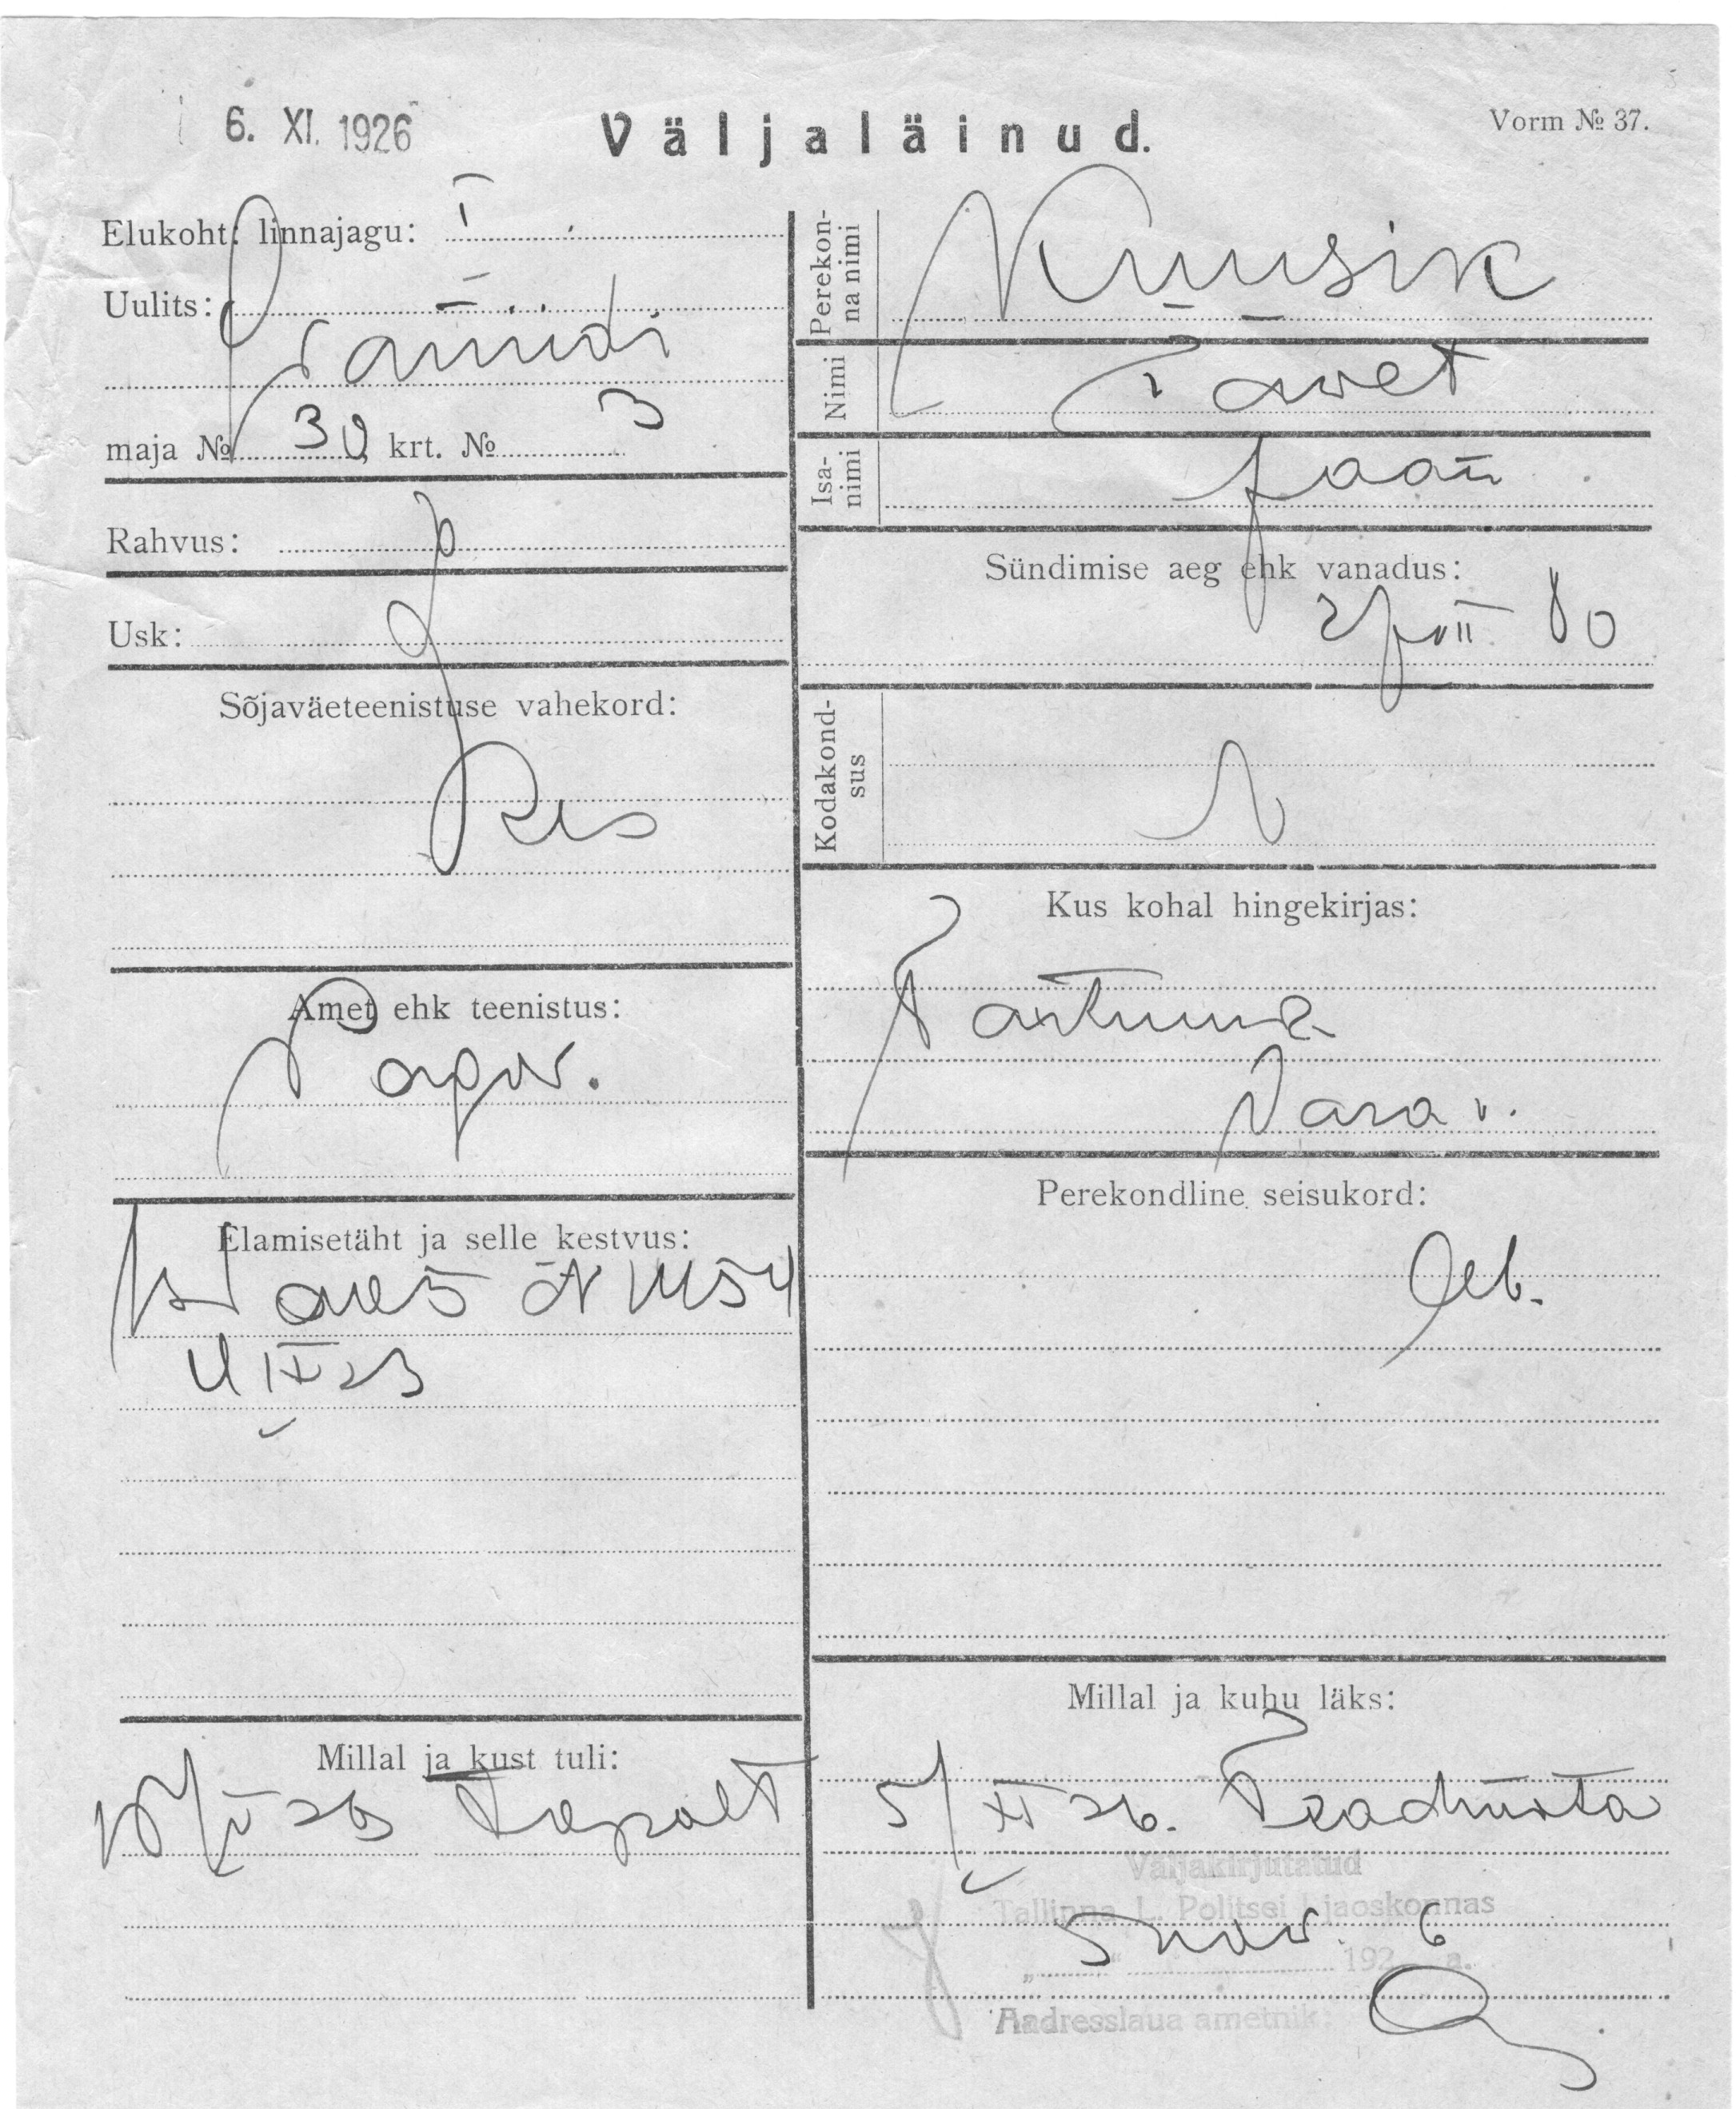 6. XI. 1926
Väljaläinud.
Vorm № 37.
Elukoht: linnajagu: I
Uulits:
maja № 30 krt. № 3
Rahvus:
Usk:
Sõjaväeteenistuse vahekord:
Res
Amet ehk teenistus:
Pagar.
Elamisetäht ja selle kestvus:
4 IX 23
Millal ja kust tuli:
Tapalt
Perekonna nimi
Kuusik
Nimi
Tavet
Isanimi
Jaan
Sündimise aeg ehk vanadus:
80
Kodakondsus
Kus kohal hingekirjas:
Tartuma
Vara v.
Perekondline seisukord:
Millal ja kuhu läks:
5/XI 26. Teadmata
Väljakirjutatud
Tallinna L. Politsei I jaoskonnas
„5" nov. 1926 a.
Aadresslaua ametnik: